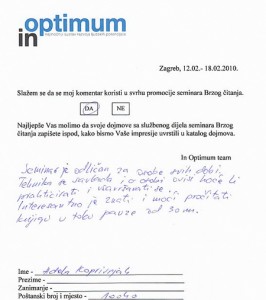 in optimum
Zagreb, 12.02.- 18.02.2010.
Slažem se da se moj komentar koristi u svrhu promocije seminara Brzog čitanja.
DA NE
Najljepše Vas molimo da svoje dojmove sa službenog dijela seminara Brzog
čitanja zapišete ispod, kako bismo Vaše impresije uvrstili u katalog dojmova.
In Optimum team
Seminar je odličan za osobe svih dobi,
Tehnika se savlada i ovisi hoće li
prakticirati i usavršavati se.
Interesantno je znati i moći pročitati
knjigu u toku pauze od 30 m.
Ime -
Prezime -
Zanimanje -
Poštanski broj i mjesto -